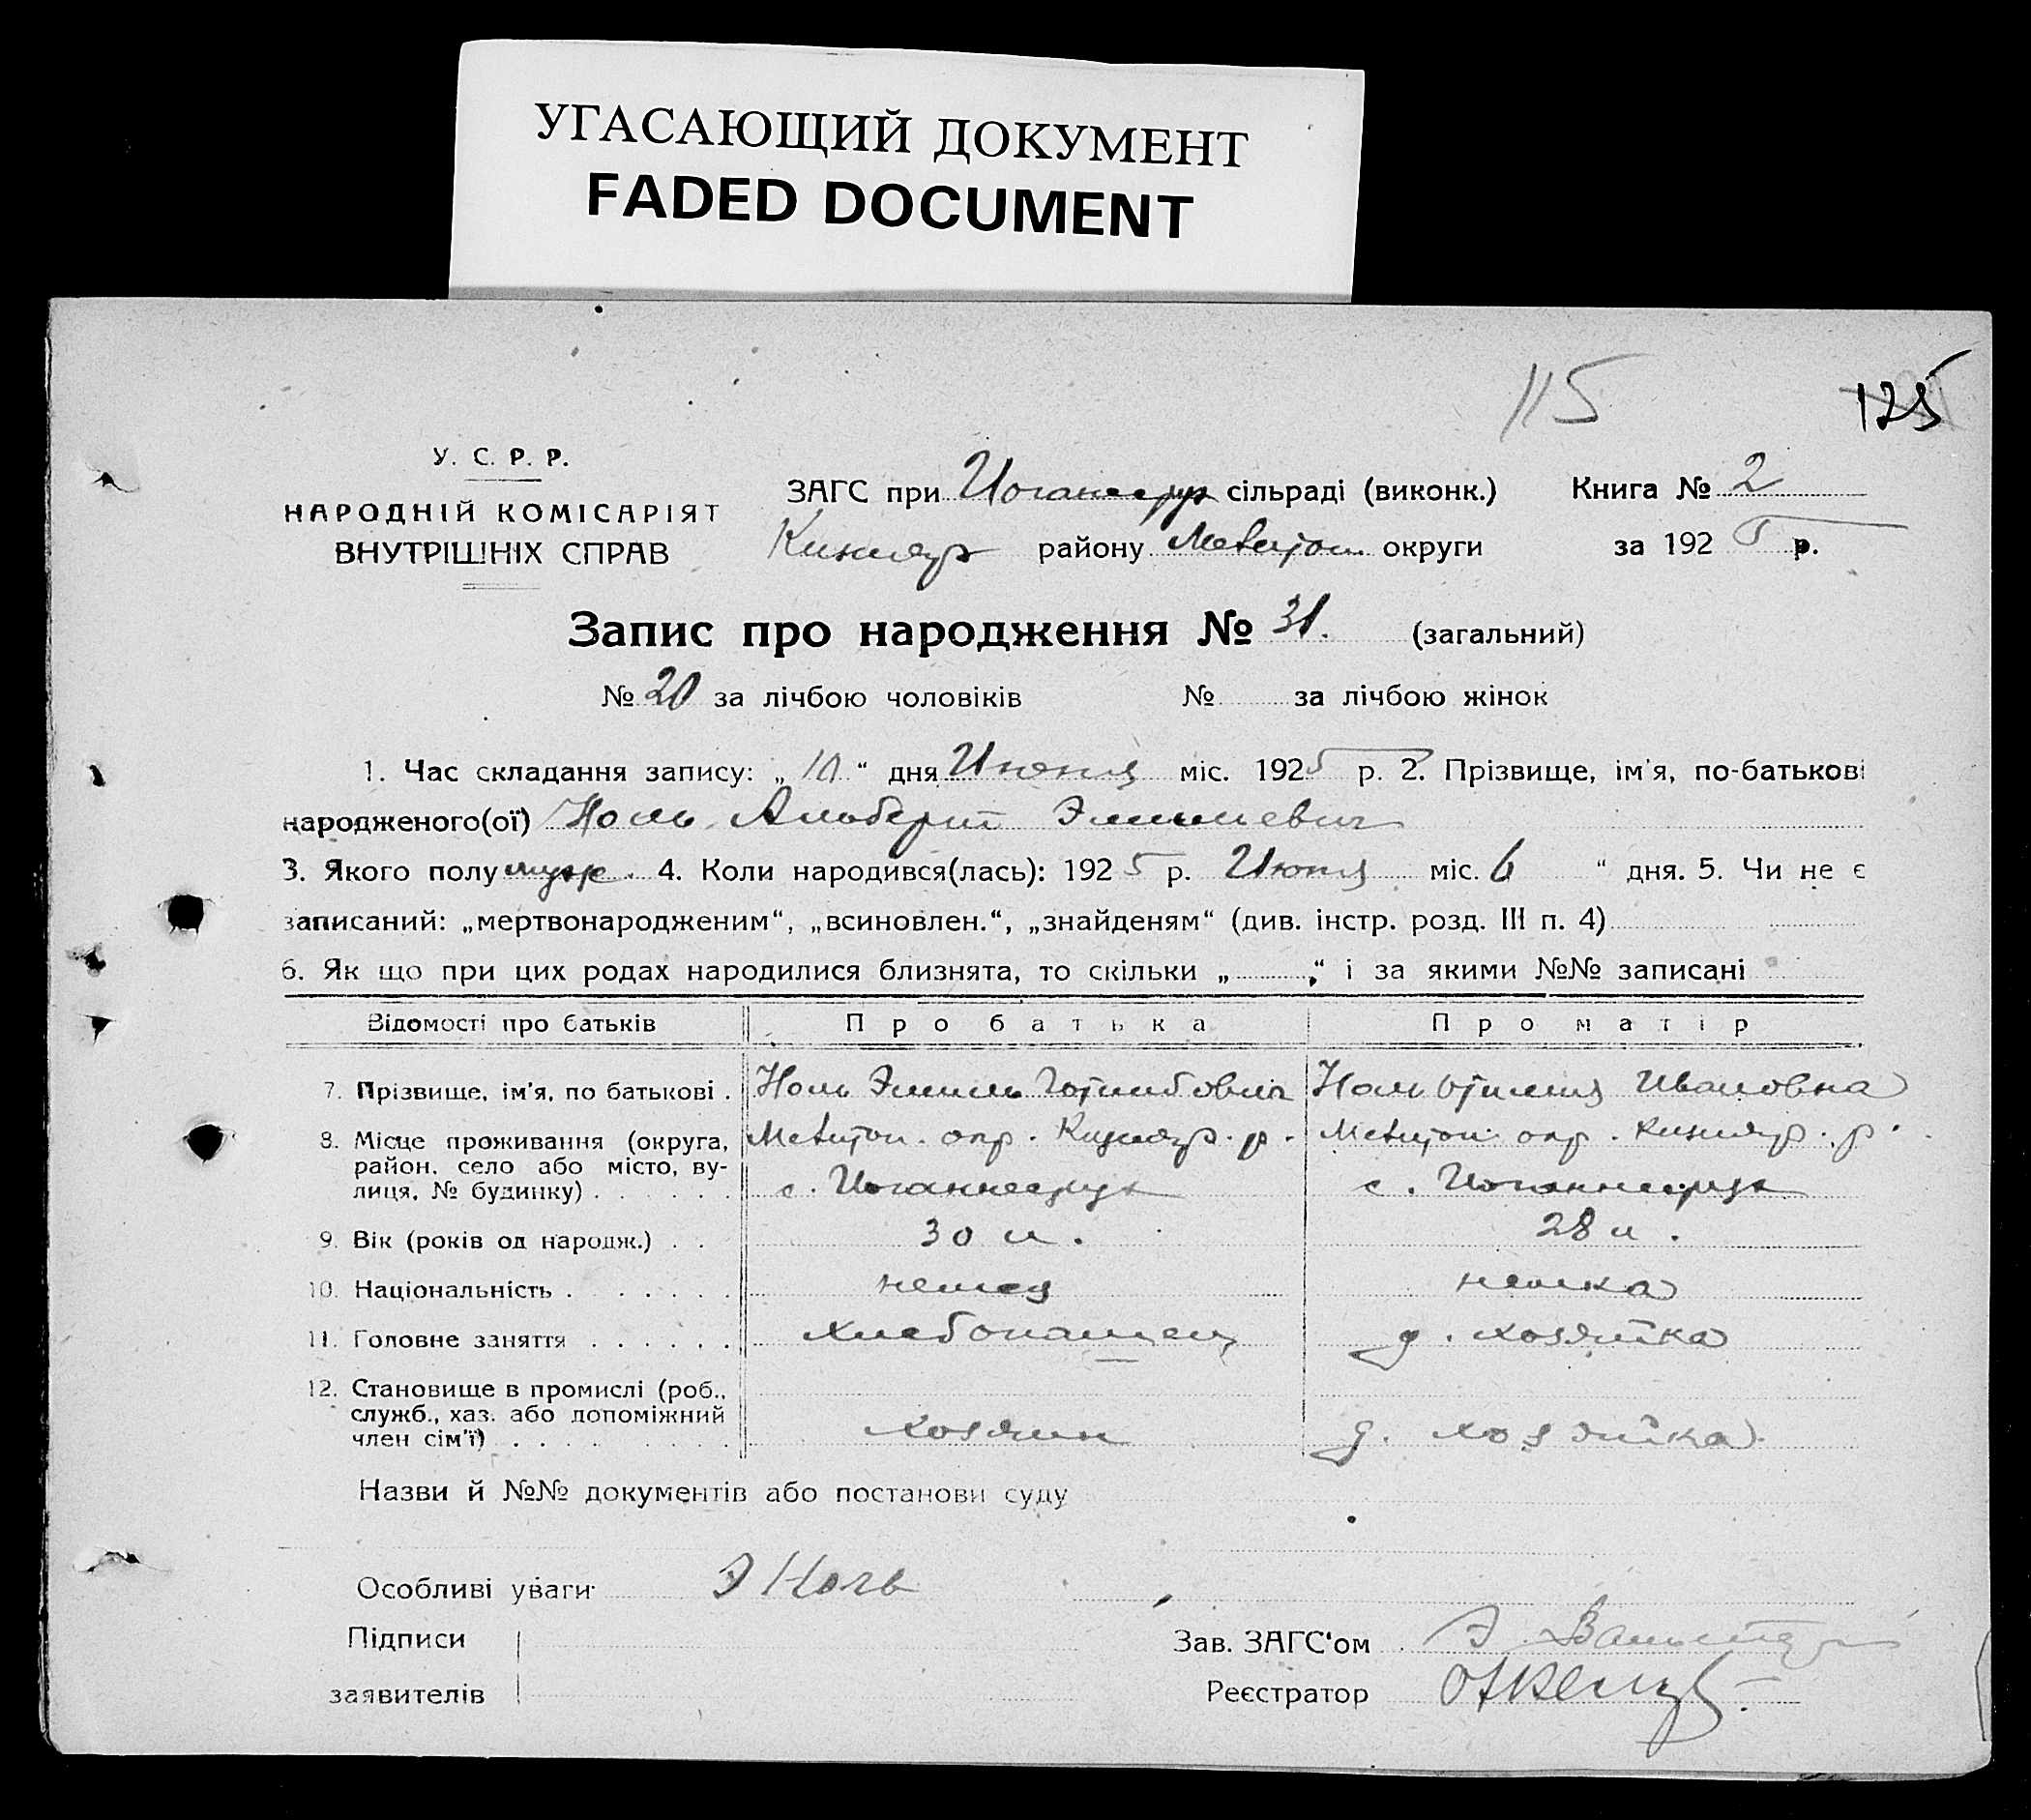 УГАСАЮЩИЙ ДОКУМЕНТ
FADED DOCUMENT
115 125
У. С. Р. Р.
НАРОДНІЙ КОМІСАРІЯТ
ВНУТРІШНІХ СПРАВ
ЗАГС при сільраді (виконк.) Книга № 2
району округи за 192 5 р.
Запис про народження № 31. (загальний)
№ 20 за лічбою чоловіків № за лічбою жінок
1. Час складання запису: „ 10 “ дня Июня міс. 1925 р. 2. Прізвище, ім'я, по-батькові
народженого(ої) Ноль Альберт Эмильевич
3. Якого полу муж. 4. Коли народився(лась): 192 5 р. Июня міс. 6 “ дня. 5. Чи не є
записаний: „мертвонародженим“, „всиновлен.“, „знайденям“ (див. інстр. розд. III п. 4)
6. Як що при цих родах народилися близнята, то скільки „ “ і за якими №№ записані
Відомості про батьків Про батька Про матір
7. Прізвище, ім'я, по батькові . Ноль Эмиль Готлибович Ноль Отилия Ивановна
8. Місце проживання (округа, Мелитоп. окр. р. Мелитоп. окр. р.
район, село або місто, ву-
лиця, № будинку) . . . . . . с. Иоганнесру с. Иоганнесру
9. Вік (років од народж.) . . 30 л. 28 л.
10. Національність . . . . . . немец немка
11. Головне заняття . . . . . . хлебопашец д. хозяйка
12. Становище в промислі (роб.,
служб., хаз. або допоміжний
член сім'ї) . . . . . . . . хозяин д. хозяйка
Назви й №№ документів або постанови суду
Особливі уваги Э Ноль
Підписи Зав. ЗАГС'ом Э.
заявителів Реєстратор